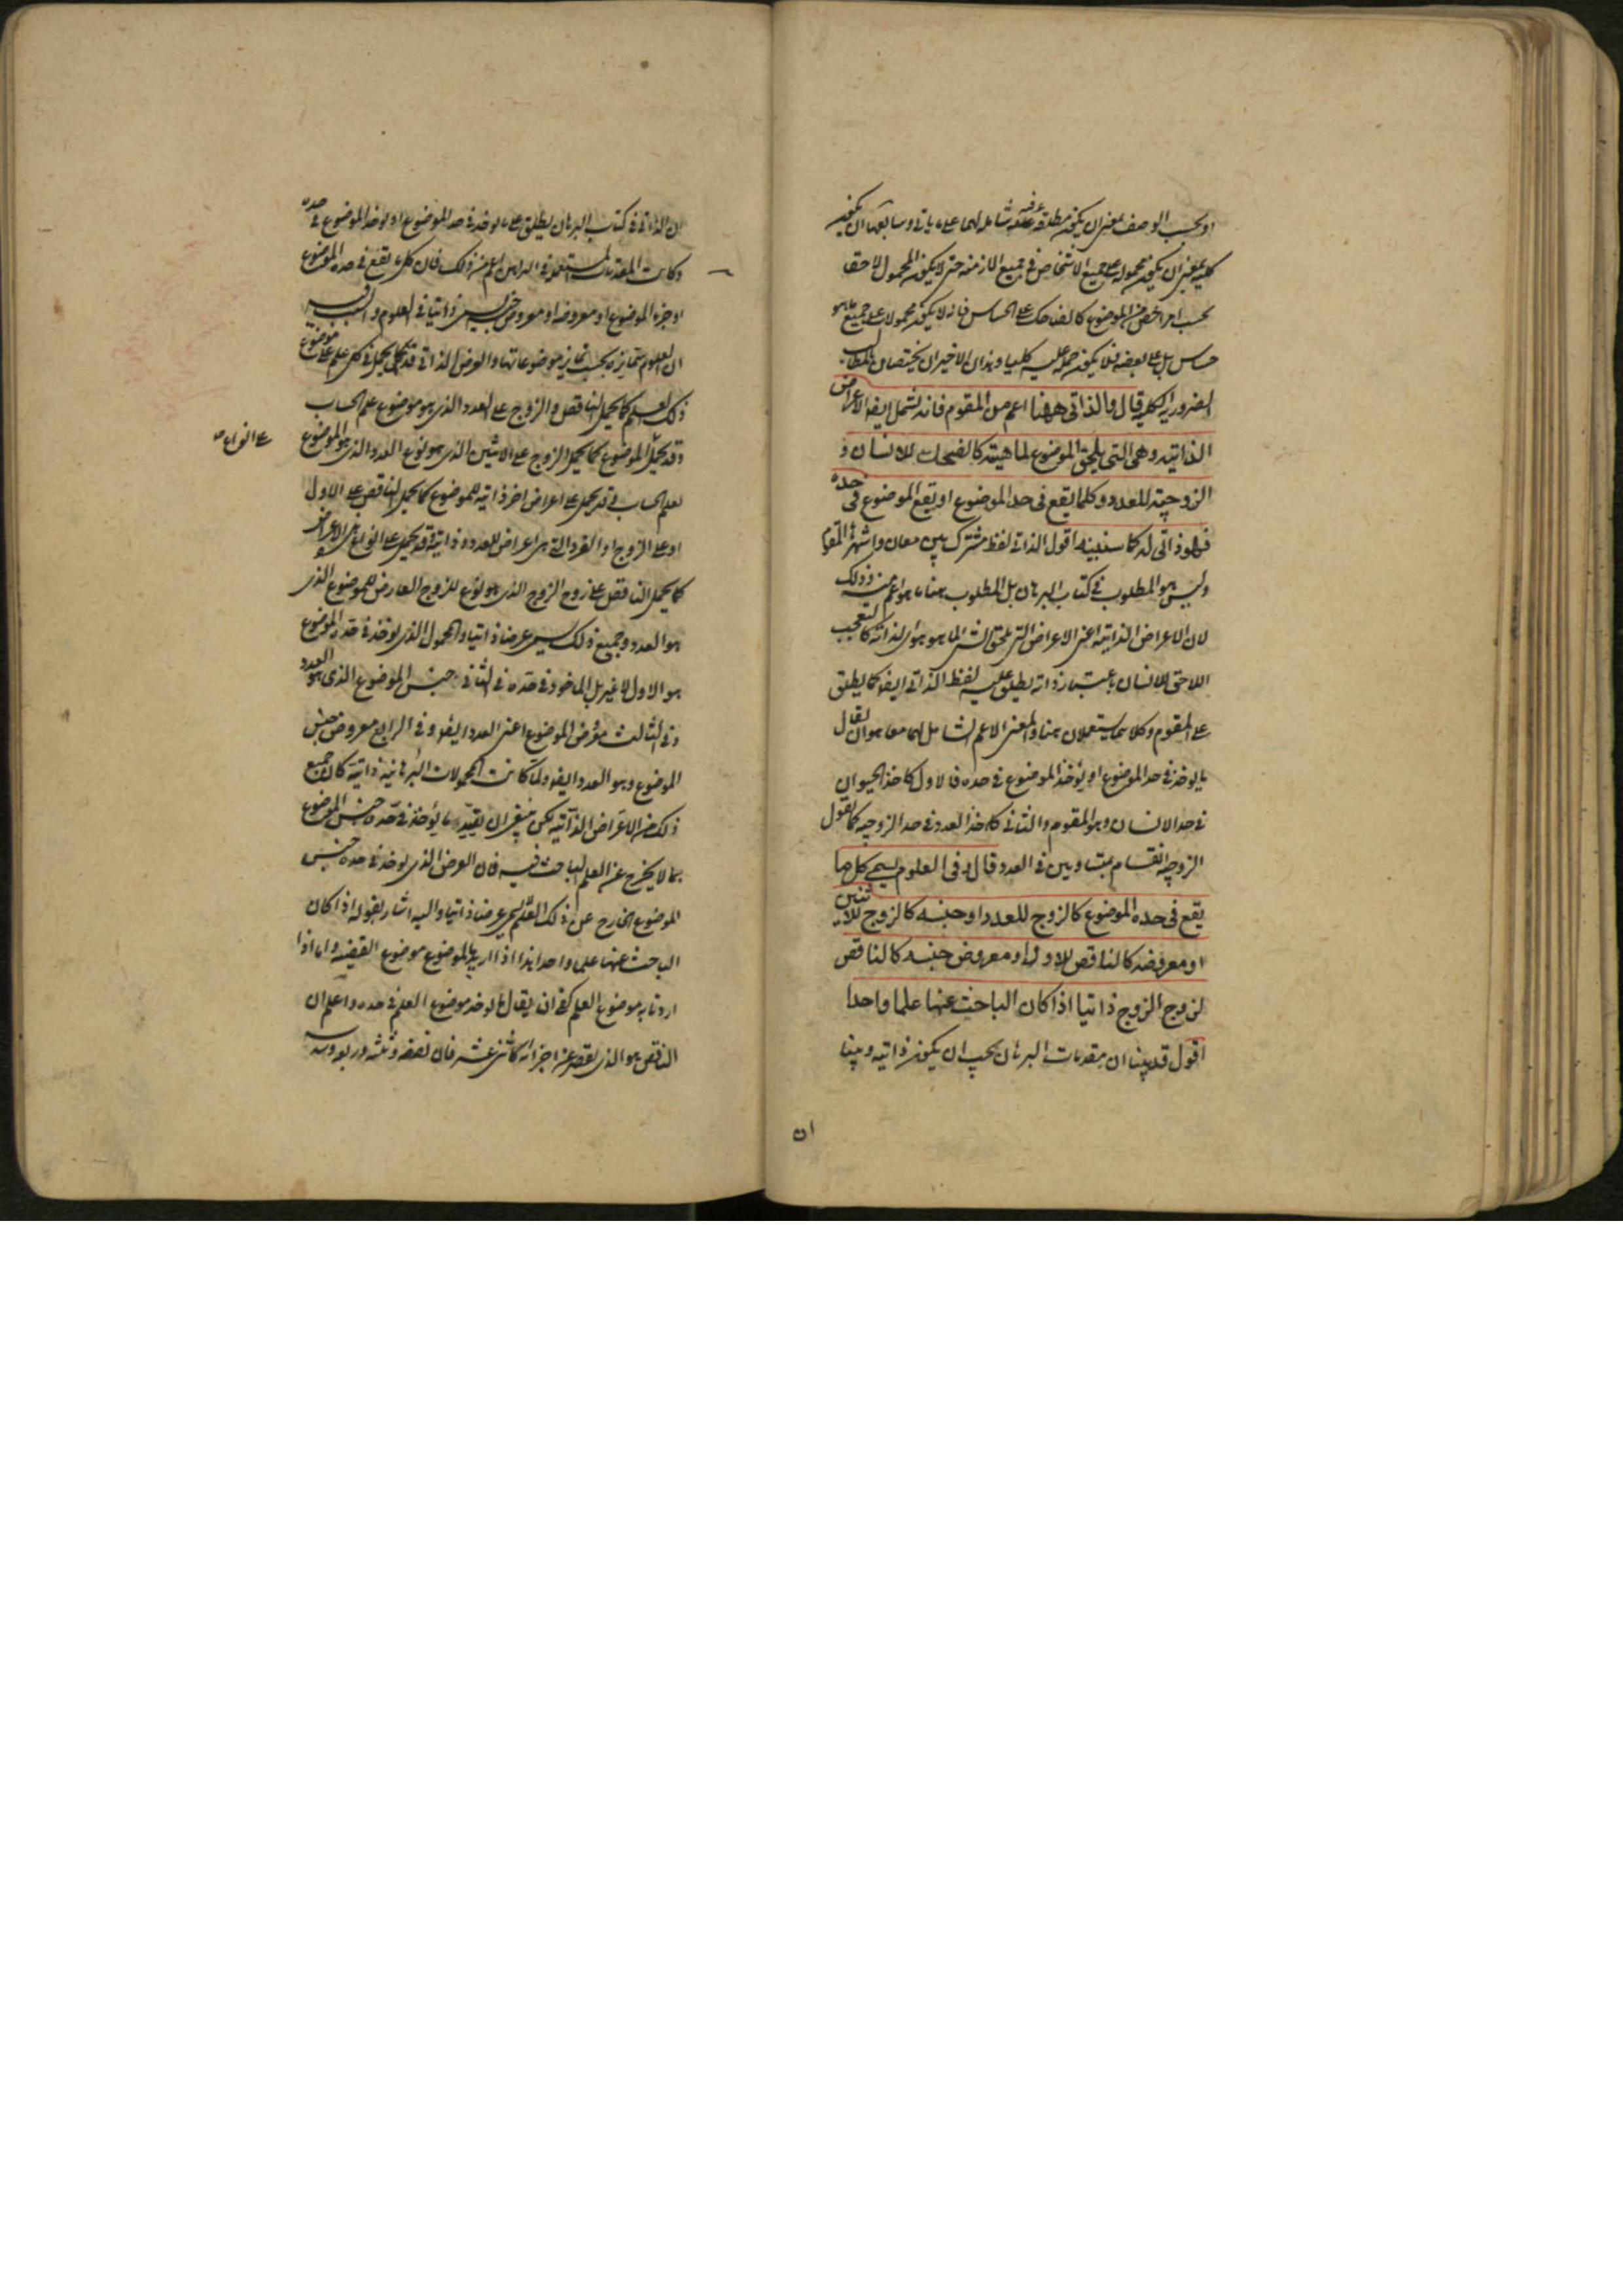 او بحسب الوصف بمعنى ان يكون مطلقة عرفية شاملة لهما على ما ياتى وسابعها ان يكون
كلية بمعنى ان يكون محمولة على جميع الاشخاص فى جميع الازمنة حتى لا يكون المحمول لاحقا
بحسب امر اخص من الموضوع كالضاحك على الحساس فانه لا يكون محمولا على جميع ما هو
حساس بل على بعضه فلا يكون حمله عليه كليا وهذان الاخيران يختصان بالمطالب
الضرورية الكلية قال والذاتى ههنا اعم من المقوم فانه يشمل ايضا الاعراض
الذاتية وهى التى يلحق الموضوع لماهيته كالضحك للانسان و
الزوجية للعدد وكلما يقع فى حد الموضوع او يقع الموضوع فى حده
فهو ذاتى له كما سنبينه اقول الذاتى لفظ مشترك بين معان واشهرها المقوم
وليس هو المطلوب فى كتاب البرهان بل المطلوب هنا ما هو اعم من ذلك
لان الاعراض الذاتية اعنى الاعراض التى يلحق الشئ لما هو هو اى لذاته كالتعجب
اللاحق للانسان باعتبار ذاته يطلق عليه لفظ الذاتى ايضا كما يطلق
على المقوم وكلاهما يستعملان هنا والمعنى الاعم الشامل لهما معا هو ان يقال
ما يوخذ فى حد الموضوع او يؤخذ الموضوع فى حده فالاول كاخذ الحيوان
فى حد الانسان وهو المقوم والثانى كاخذ العدد فى حد الزوجية كما يقول
الزوجية انقسام بمتساويين فى العدد قال وفى العلوم يسمى كل ما
يقع فى حده الموضوع كالزوج للعدد او جنسه كالزوج للاثنين
او معروضه كالناقص للاول او معروض جنسه كالناقص
لزوج الزوج ذاتيا اذا كان الباحث عنها علما واحدا
اقول قد بينا ان مقدمات البرهان يجب ان يكون ذاتية وبينا
ان
ان الذاتى فى كتاب البرهان يطلق على ما يوخذ فى حد الموضوع او يوخذ الموضوع فى حده
وكانت المقدمات المستعملة فى البراهين اعم من ذلك فان كل ما يقع فى حده الموضوع
او جزء الموضوع او معروضه او معروض جنسه يسمى ذاتيا فى العلوم والسبب فيه
ان العلوم متمايزة بحسب تمايز موضوعاتها والعرض الذاتى قد يحمل فى كل علم على موضوع
ذلك العلم كما يحمل الناقص والزوج على العدد الذى هو موضوع علم الحساب
وقد يحمل الموضوع كما يحمل الزوج على الاثنين الذى هو نوع العدد الذى هو الموضوع
على انواع
لعلم الحساب وقد يحمل على اعراض اخر ذاتية للموضوع كما يحمل الناقص على الاول
او على الزوج او الفرد التى هى اعراض للعدد ذاتية وقد يحمل على انواع هذه الاعراض
كما يحمل الناقص على زوج الزوج الذى هو نوع للزوج العارض للموضوع الذى
هو العدد وجميع ذلك يسمى عرضا ذاتيا والمحمول الذى يوخذ فى حده الموضوع
هو الاول لا غير بل الماخوذ فى حده فى الثانى جنس الموضوع الذى هو العدد
وفى الثالث معروض الموضوع اعنى العدد ايضا وفى الرابع معروض جنس
الموضوع وهو العدد ايضا ولما كانت المحمولات البرهانية ذاتية كان جميع
ذلك من الاعراض الذاتية لكن ينبغى ان يقيد ما يؤخذ فى حده جنس الموضوع
بما لا يخرج عن العلم الباحث فيه فان العرض الذى يوخذ فى حده جنس
الموضوع الخارج عن ذلك العلم لا يسمى عرضا ذاتيا واليه اشار بقوله اذا كان
الباحث عنها علما واحدا هذا اذا اريد بالموضوع موضوع القضية واما اذا
اردنا به موضوع العلم كفى ان يقال ما يوخذ موضوع العلم فى حده واعلم ان
الناقص هو الذى ينقص عنه اجزائه كاثنى عشر فان نصفه وثلثه وربعه وسدسه